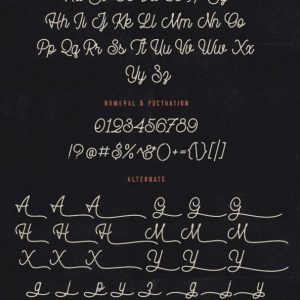 Hh Ii Jj Kk Ll Mm Nn Oo
Pp Qq Rr Ss Tt Uu Vv Ww Xx
Yy Zz
NUMERAL & PUCTUATION
0123456789
!?@#$%^&()+={}[]
ALTERNATE
A A A G G G
H H H M M M
X X X Y Y Y